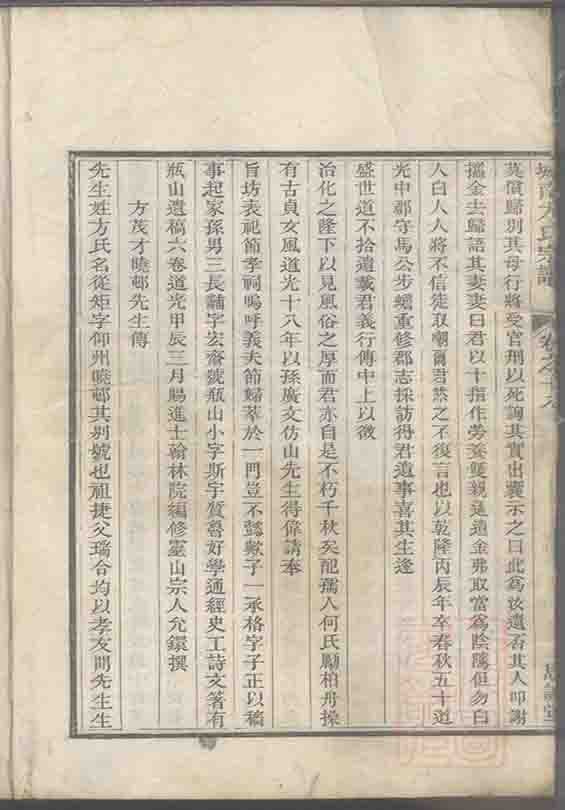 城南方氏宗譜 卷之十九
莫償歸別其母行將受官刑以死詢其實出囊示之曰此為汝遺否其人叩謝
攜金去歸語其妻妻曰君以十指作勞養雙親這遺金弗取當為陰隲但勿白
人白人人將不信徒取嘲爾君然之不復言也以乾隆丙辰年卒春秋五十道
光中郡守馬公步蟾重修郡志採訪得君遺事喜其生逢
盛世道不拾遺載君義行傳中上以徵
治化之隆下以見風俗之厚而君亦自是不朽千秋矣配孺人何氏勵柏舟操
有古貞女風道光十八年以孫廣文仿山先生得偉請奉
旨坊表祀節孝祠嗚呼義夫節婦萃於一門豈不懿歟子一承格字子正以稿
事起家孫男三長輔字宏齋號瓶山小字斯宇質魯好學通經史工詩文著有
瓶山遺稿六卷道光甲辰三月賜進士翰林院編修靈山宗人允鐶撰
方茂才曉邨先生傳
先生姓方氏名從矩字仰州曉邨其別號也祖捷父瑞合均以孝友聞先生生